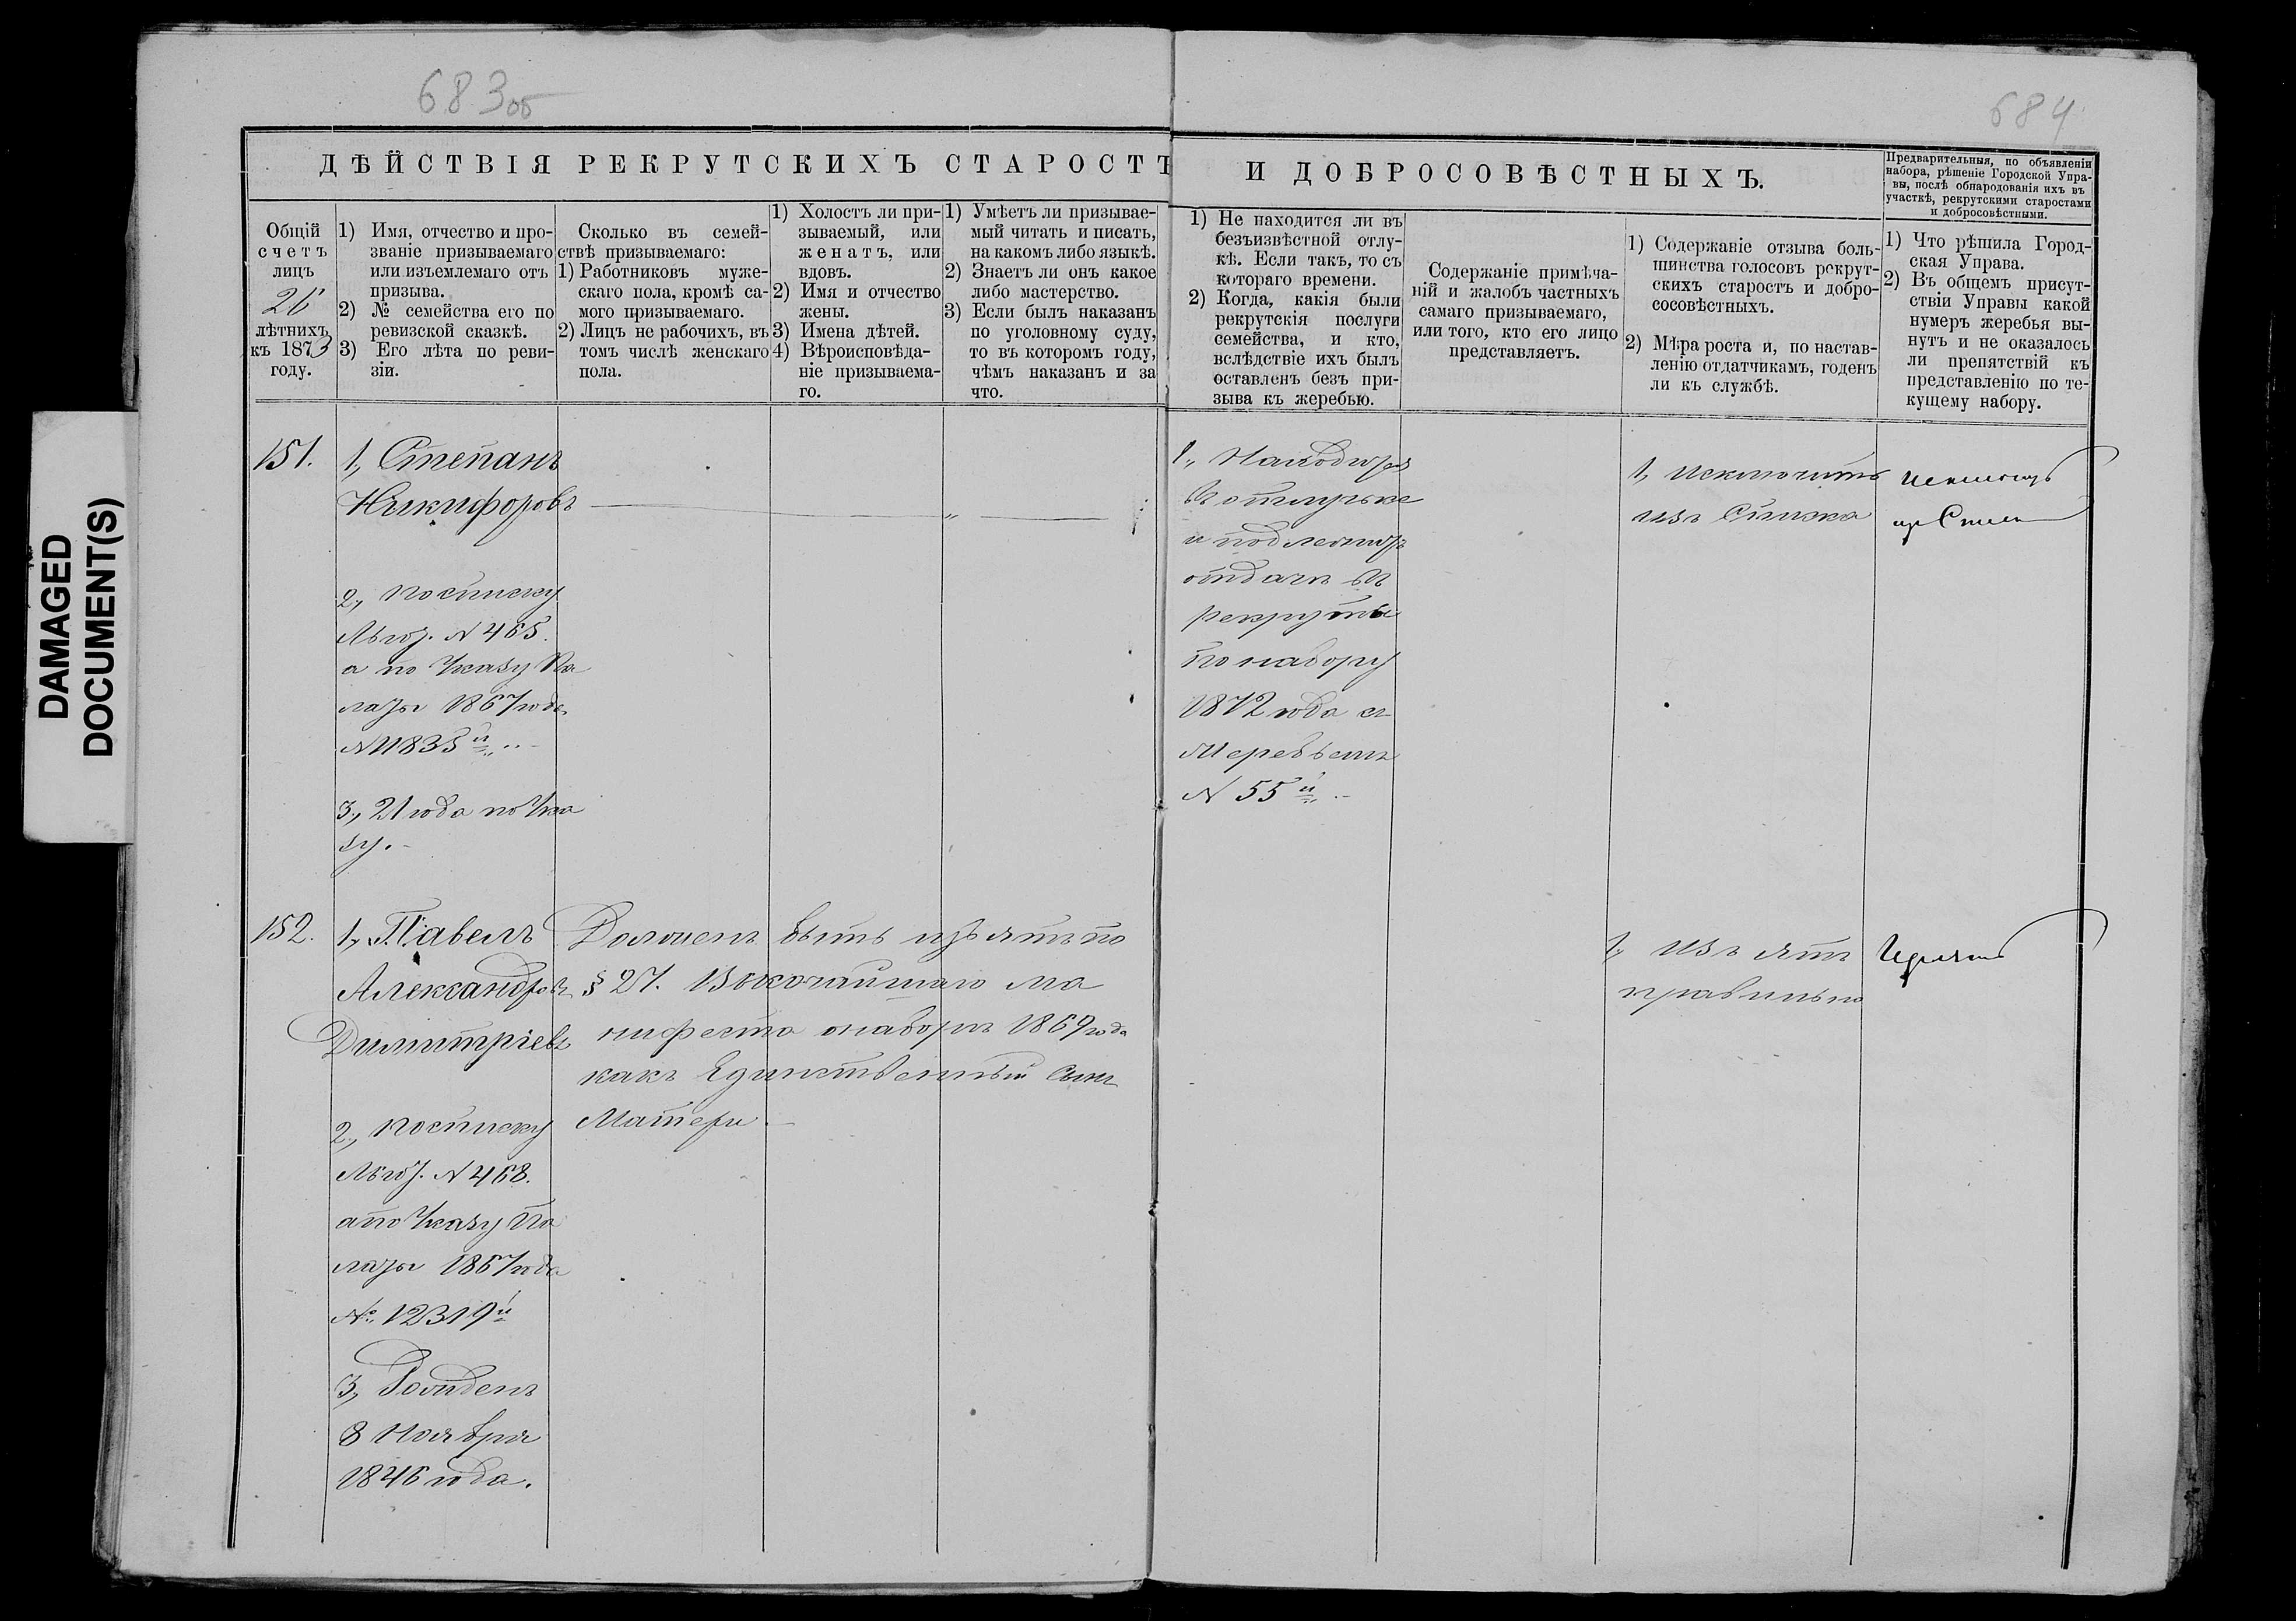 683об
684
DAMAGED
DOCUMENT(S)
ДѢЙСТВІЯ РЕКРУТСКИХЪ СТАРОСТЪ И ДОБРОСОВѢСТНЫХЪ.
Предварительныя, по объявленіи
набора, рѣшеніе Городской Упра-
вы, послѣ обнародованія ихъ въ
участкѣ, рекрутскими старостами
и добросовѣстными.
Общій
счетъ
лицъ
26
лѣтнихъ
къ 1873
году.
1) Имя, отчество и про-
званіе призываемаго
или изъемлемаго отъ
призыва.
2) № семейства его по
ревизской сказкѣ.
3) Его лѣта по реви-
зіи.
Сколько въ семей-
ствѣ призываемаго:
1) Работниковъ муже-
скаго пола, кромѣ са-
мого призываемаго.
2) Лицъ не рабочихъ, въ
томъ числѣ женскаго
пола.
1) Холостъ ли при-
зываемый, или
женатъ, или
вдовъ.
2) Имя и отчество
жены.
3) Имена дѣтей.
4) Вѣроисповѣда-
ніе призываема-
го.
1) Умѣетъ ли призывае-
мый читать и писать,
на какомъ либо языкѣ.
2) Знаетъ ли онъ какое
либо мастерство.
3) Если былъ наказанъ
по уголовному суду,
то въ которомъ году,
чѣмъ наказанъ и за
что.
1) Не находится ли въ
безъизвѣстной отлу-
кѣ. Если такъ, то съ
котораго времени.
2) Когда, какія были
рекрутскія послуги
семейства, и кто,
вслѣдствіе ихъ былъ
оставленъ безъ при-
зыва къ жеребью.
Содержаніе примѣча-
ній и жалобъ частныхъ
самаго призываемаго,
или того, кто его лицо
представляетъ.
1) Содержаніе отзыва боль-
шинства голосовъ рекрут-
скихъ старостъ и добро-
сосовѣстныхъ.
2) Мѣра роста и, по настав-
ленію отдатчикамъ, годенъ
ли къ службѣ.
1) Что рѣшила Город-
ская Управа.
2) Въ общемъ присут-
ствіи Управы какой
нумеръ жеребья вы-
нутъ и не оказалось
ли препятствій къ
представленію по те-
кущему набору.
151.
1, Степанъ
Никифоровъ
2, по списку
Льгот. N 465.
а по Указу Па
латы 1867 года
N 11835й
3, 21 года по Ука
зу.
1, Находится
въ отлучке
и подлежитъ
отдачѣ въ
рекруты
по набору
1872 года съ
Жеребьемъ
N 55й
1, исключить
изъ Списка
152.
1, Павелъ
Александровъ
Димитріевъ
2, по списку
Льгот. N 468.
а по Указу Па
латы 1867 года
№ 12319й
3, Рожденъ
8 Ноября
1846 года.
Долженъ быть изъятъ по
§ 27. Высочайшаго Ма
нифеста о наборѣ 1869 года
какъ Единственный Сынъ
Матери
1, изъять
правильно
Изъять